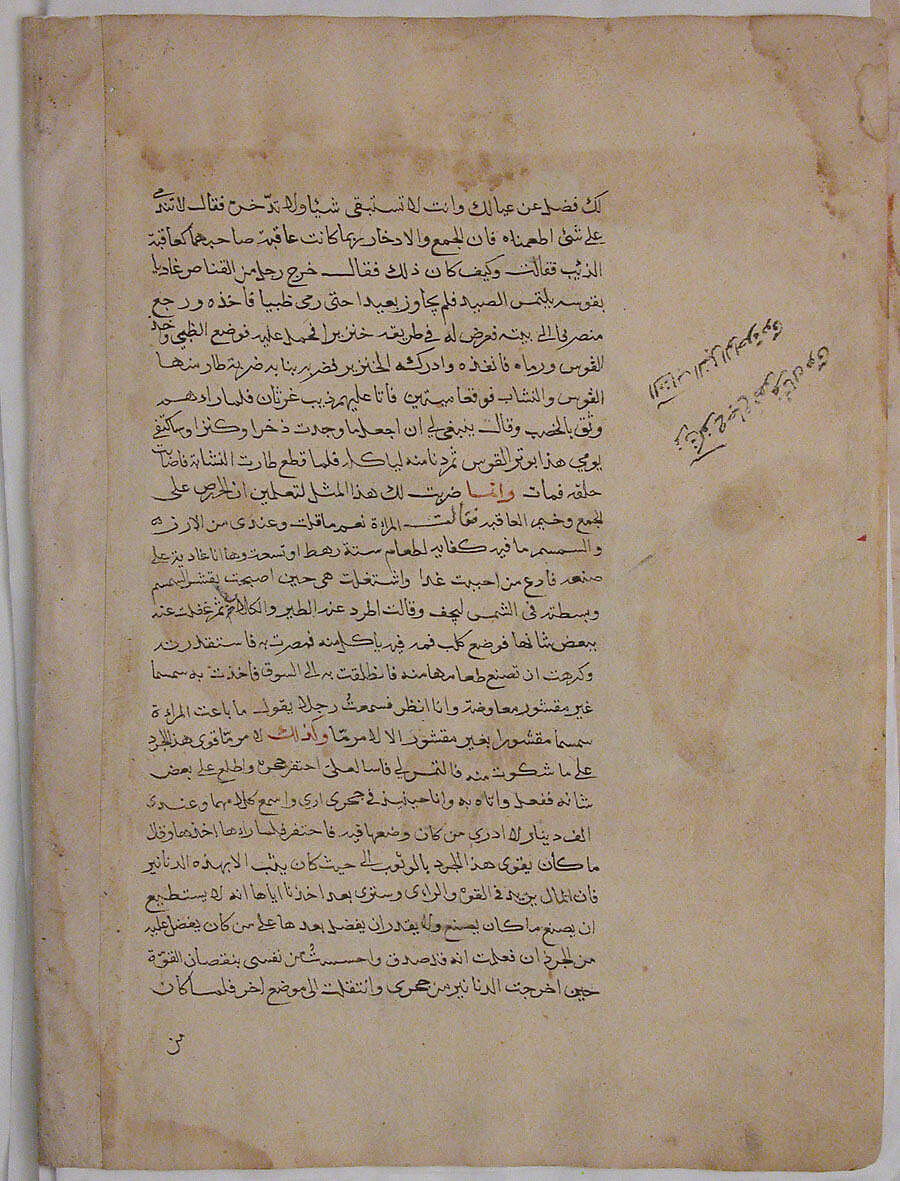 لك فضل عن عيالك وانت لا تستبقى شيًا ولا تدّخره فقال لا تندمى
على شئ اطعمناه فان الجمع والادخار ربما كانت عاقبة صاحبهما كعاقبة
الذئب فقالت وكيف كان ذلك فقال خرج رجل من القناص غاديا
بقوسه يلتمس الصيد فلم يجاوز بعيدا حتى رمى ظبيا فاخذه ورجع
منصرفا الى بيته فعرض له فى طريقه خنزير فحمل عليه فوضع الظبى واخذ
القوس ورماه فانفذه وادركه الخنزير فضربه بنابه ضربة طار منها
القوس والنشاب فوقعا ميتين فاتا عليهم ذيب غرثان فلما راهم
وثق بالخصب وقال ينبغى لى ان اجعل ما وجدت ذخرا وكنزا وساكتفى
يومى هذا بوتر القوس ثم دنا منه لياكله فلما قطع طارت النشابة فاصابت
حلقه فمات وانما ضربت لك هذا المثل لتعلمين ان الحرص على
الجمع وخيم العاقبة فقالت المراة نعم ما قلت وعندى من الارز
والسمسم ما فيه كفاية لطعام ستة رهط او تسعة وها انا غادية على
صنعه فادع من احببت غدا واشتغلت هى حين اصبحت بقشر السمسم
وبسطته فى الشمس ليجف وقالت اطرد عنه الطير والكلاب ثم غفلت عنه
ببعض شانها فوضع كلب فمه فيه ياكل منه فبصرت به فاستقذرته
وكرهت ان تصنع طعامها منه فانطلقت به الى السوق فاخذت به سمسما
غير مقشور معاوضة وانا انظر فسمعتُ رجلا يقول ما باعت المراة
سمسما مقشورا بغير مقشور الا لامر ما وكذلك لامر ما قوى هذا الجرد
على ما شكوت منه فالتمس لى فاسا لعلى احتفر جحره واطلع على بعض
شانه ففعل واتاه به وانا حينيذ فى جحرى ارى واسمع كلامهما وعندى
الف دينار لا ادرى من كان وضعها فيه فاحتفر فلما راها اخذها وقال
ما كان يقوى هذا الجرد بالوثوب الى حيث كان يثب الا بهذه الدنانير
فان المال يزيد فى القوه والراى وسترى بعد اخذنا اياها انه لا يستطيع
ان يصنع ما كان يصنع ولا يقدر ان يفضل بعدها على من كان يفضل عليه
من الجردان فعلمت انه قد صدق واحسستُ من نفسى بنقصان القوة
حين اخرجت الدنانير من جحرى وانتقلت الى موضع اخر فلما كان
من